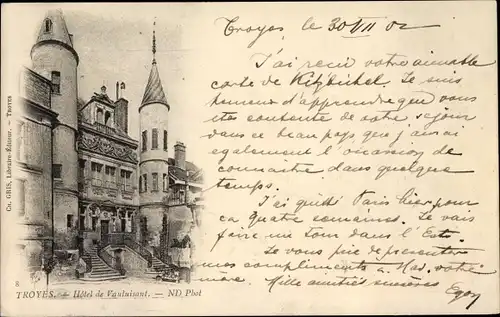 Troyes, le 30/VII 02
J'ai reçu votre aimable
carte de Kitzbichel. Je suis
heureux d'apprendre que vous
êtes contente de votre séjour
dans ce beau pays que j'aurai
également l'occasion de
connaître dans quelque
temps.
J'ai quitté Paris hier pour
ça quatre semaines. Je vais
faire un tour dans l'Est.
Je vous prie de présenter
mes compliments à Mad. votre
mère. Mille amitiés sincères
Egon
Ch. GRIS, Libraire-Éditeur. — TROYES
8
TROYES. — Hôtel de Vauluisant. — ND Phot